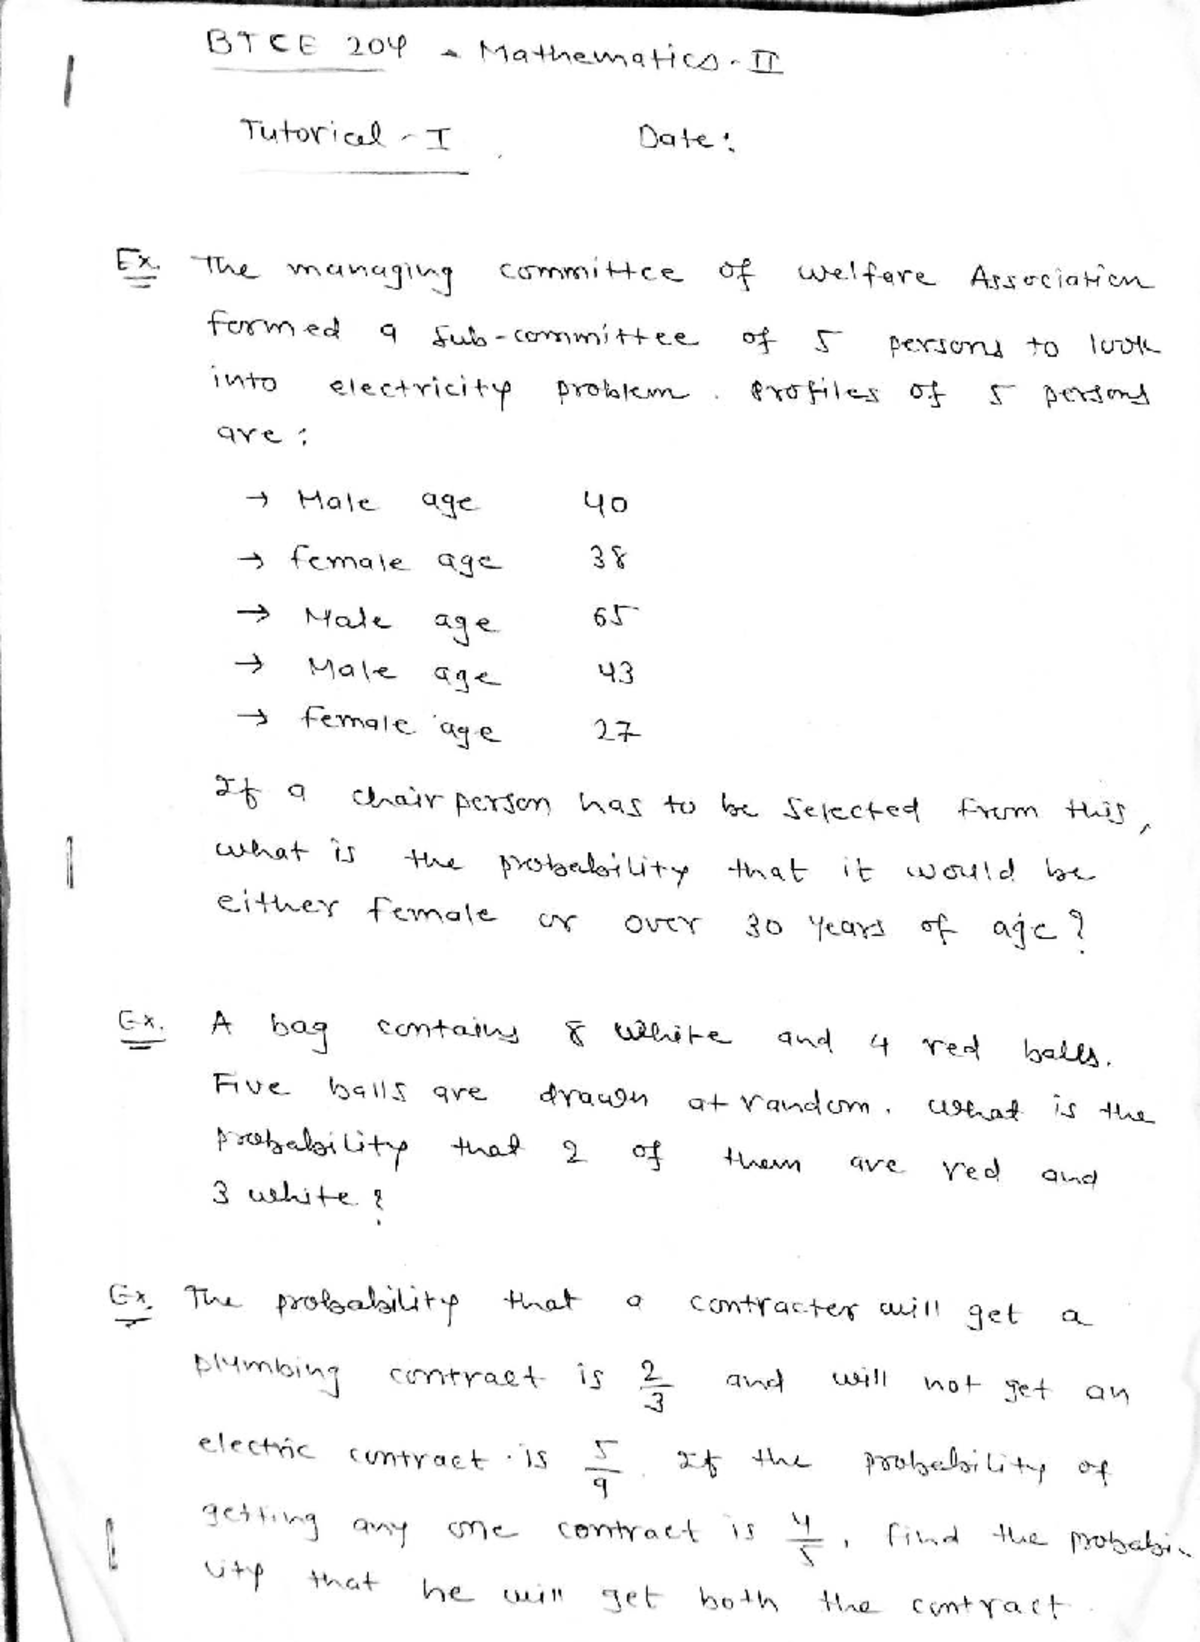 BTCE 204 - Mathematics - II
Tutorical - I Date:
Ex. The managing committee of welfare Association
formed a sub-committee of 5 persons to look
into electricity problem. Profiles of 5 persons
are:
→ Male age 40
→ female age 38
→ Male age 65
→ Male age 43
→ female age 27
If a chair person has to be selected from this,
what is the probability that it would be
either female or over 30 years of age?
Ex. A bag contains 8 white and 4 red balls.
Five balls are drawn at random. what is the
probability that 2 of them are red and
3 white?
Ex. The probability that a contracter will get a
plumbing contract is 2/3 and will not get an
electric contract is 5/9. If the probability of
getting any one contract is 4/5, find the probabi-
lity that he will get both the contract.